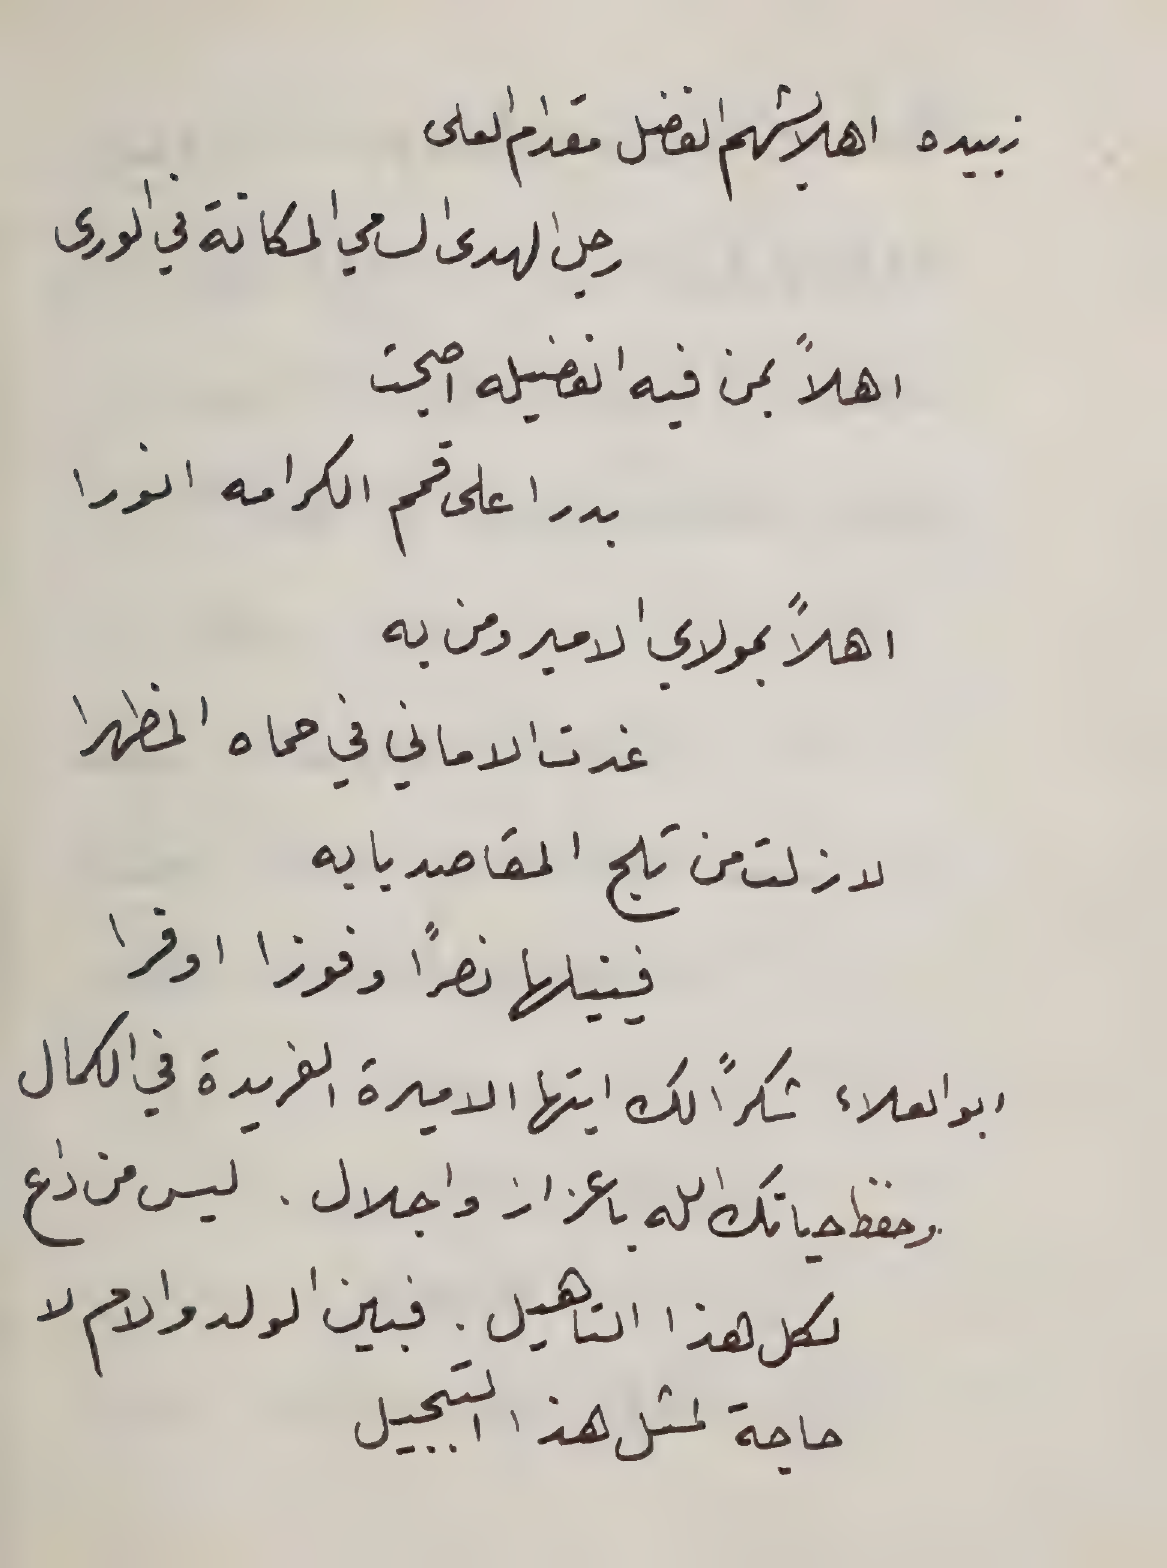 زبيده اهلا بشهم الفضل مقدام العلى
رجل الهدى السامي المكانة في الورى
اهلاً بمن فيه الفضيله اصبحت
بدرا على قمم الكرامه انورا
اهلاً بمولاي الامير ومن به
غدت الاماني في حماه المظهرا
لازلت من تلج المقاصد بابه
فينيلها نصرًا وفوزا اوفرا
ابو العلاء شكرًا لك ايتها الاميرة الفريدة في الكمال
وحفظ حياتك الله باعزاز واجلال . ليس من داع
لكل هذا التاهيل . فبين الولد والام لا
حاجة لمثل هذا التبجيل